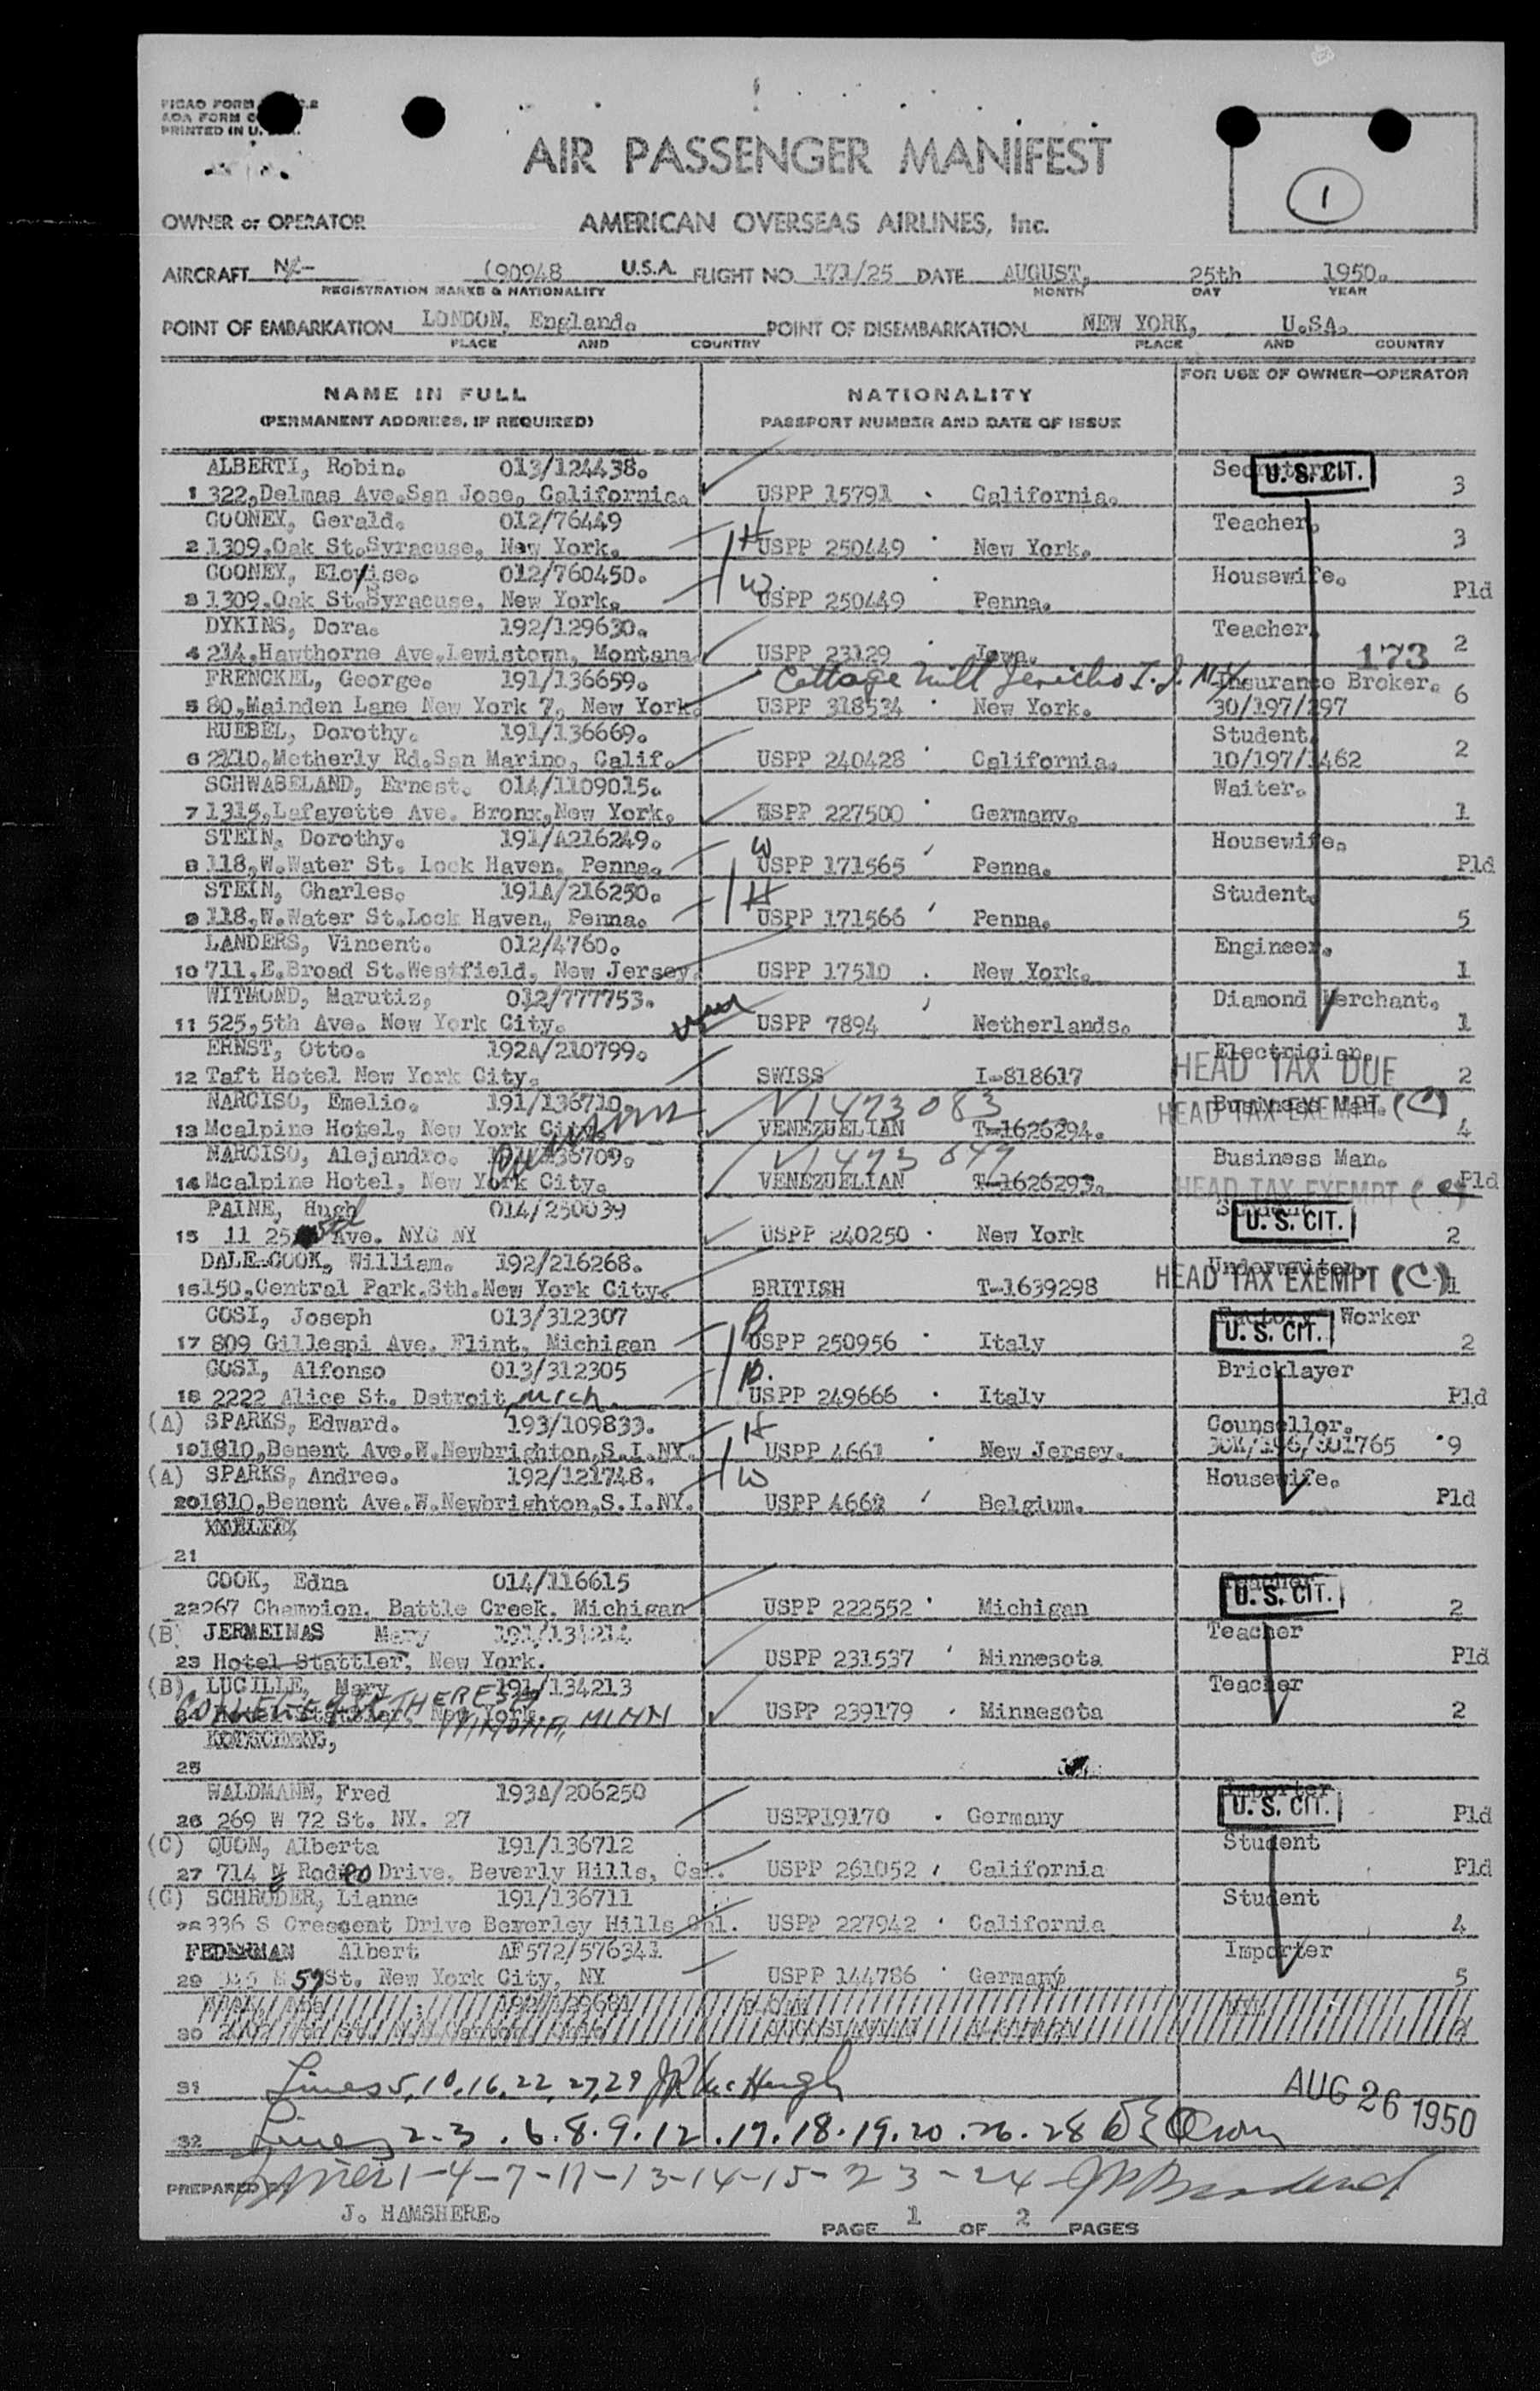 PRINTED IN U.
AIR PASSENGER MANIFEST
1
OWNER or OPERATOR AMERICAN OVERSEAS AIRLINES, Inc.
AIRCRAFT N/- (90948 U.S.A. FLIGHT NO. 171/25 DATE AUGUST, 25th 1950.
REGISTRATION MARKS & NATIONALITY MONTH DAY YEAR
POINT OF EMBARKATION LONDON, England. POINT OF DISEMBARKATION NEW YORK, U.SA.
PLACE AND COUNTRY PLACE AND COUNTRY
NAME IN FULL NATIONALITY FOR USE OF OWNER—OPERATOR
(PERMANENT ADDRESS, IF REQUIRED) PASSPORT NUMBER AND DATE OF ISSUE
ALBERTI, Robin. 013/124438. U. S. CIT.
1 322,Delmas Ave.San Jose, California. USPP 15791 . California. 3
COONEY, Gerald. 012/76449 H Teacher.
2 1309,Oak St.Syracuse, New York. USPP 250449 . New York. 3
COONEY, Eloyise. 012/760450. W. Housewife.
3 1309,Oak St.Syracuse, New York. USPP 250449 Penna. Pld
DYKINS, Dora. 192/129630. Teacher.
4 214,Hawthorne Ave,Lewistown, Montana USPP 23129 Iowa. 173 2
FRENCKEL, George. 191/136659. Cottage Mill Jericho L. I. N.Y. Insurance Broker.
5 80,Mainden Lane New York 7, New York. USPP 318534 . New York. 30/197/297 6
RUEBEL, Dorothy. 191/136669. Student
6 2110,Metherly Rd.San Marino, Calif. USPP 240428 . California. 10/197/1462 2
SCHWABELAND, Ernest. 014/1109015. Waiter.
7 1315,Lafayette Ave. Bronx,New York. USPP 227500 . Germany. 1
STEIN, Dorothy. 191/A216249. W Housewife.
8 118,W.Water St. Lock Haven, Penna. USPP 171565 Penna. Pld
STEIN, Charles. 191A/216250. H Student.
9 118,W.Water St.Lock Haven, Penna. USPP 171566 Penna. 5
LANDERS, Vincent. 012/4760. Engineer.
10 711,E.Broad St.Westfield, New Jersey. USPP 17510 . New York. 1
WITMOND, Marutiz, 012/777753. Diamond Merchant.
11 525,5th Ave. New York City. USPP 7894 Netherlands. 1
ERNST, Otto. 192A/210799. Electrician.
12 Taft Hotel New York City. SWISS I-818617 HEAD TAX DUE 2
NARCISO, Emelio. 191/136710 V1473083 Business Man.
13 Mcalpine Hotel, New York City. VENEZUELIAN T-1626294. HEAD TAX EXEMPT (C) 4
NARCISO, Alejandro. 36709. Business Man.
14 Mcalpine Hotel, New York City. VENEZUELIAN T-1626293. HEAD TAX EXEMPT (C) Pld
PAINE, Hugh 014/250039 Student
15 11 25 Ave. NYC NY USPP 240250 . New York U. S. CIT. 2
DALE-COOK, William. 192/216268. Underwriter.
16 150,Central Park,Sth.New York City. BRITISH T-1639298 HEAD TAX EXEMPT (C) 1
COSI, Joseph 013/312307 B Factory Worker
17 809 Gillespi Ave. Flint, Michigan USPP 250956 . Italy U. S. CIT. 2
COSI, Alfonso 013/312305 B. Bricklayer
18 2222 Alice St. Detroit, Mich. USPP 249666 . Italy Pld
(A) SPARKS, Edward. 193/109833. H Counsellor.
19 1810,Benent Ave.W.Newbrighton,S.I.NY. USPP 4661 New Jersey. 9
(A) SPARKS, Andree. 192/121748. W Housewife.
20 1810,Benent Ave.W.Newbrighton,S.I.NY. USPP 4662 Belgium. Pld
21
COOK, Edna 014/116615 Teacher
22 267 Champion. Battle Creek. Michigan USPP 222552 . Michigan U. S. CIT. 2
(B) JERMEINAS Mary 191/134214 Teacher
23 Hotel Stattler, New York. USPP 231537 Minnesota Pld
(B) LUCILLE, Mary 191/134213 Teacher
COLLEGE ST THERESA WINONA, MINN USPP 239179 . Minnesota 2
25
WALDMANN, Fred 193A/206250 Importer
26 269 W 72 St. NY. 27 USPP19170 . Germany U. S. CIT. Pld
(C) QUON, Alberta 191/136712 Student
27 714 N Rodeo Drive, Beverly Hills, Cal. USPP 261052 . California Pld
(C) SCHRODER, Lianne 191/136711 Student
28 336 S Crescent Drive Beverley Hills Cal. USPP 227942 . California 4
FEDERMAN Albert AF572/576341 Importer
29 57 St. New York City, NY USPP 144786 . Germany 5
30
31 Lines 5, 10, 16, 22, 27, 29 McHugh AUG 26 1950
32 Lines 2-3 . 6. 8. 9. 12. 17. 18. 19. 20. 26. 28
PREPARED Lines 1-4-7-11-13-14-15-23-24
J. HAMSHERE.
PAGE 1 OF 2 PAGES